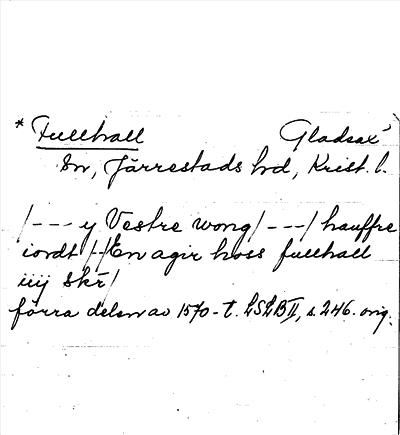 * Fullhall Gladsax'
sn, Järrestads hd, Krist. l.
/--- y Vestre wong/---/ hauffre
iordt/-/En agir hoss fullhall
iiij skr/
förra delen av 1570-t. LSLB II, s. 246. orig.